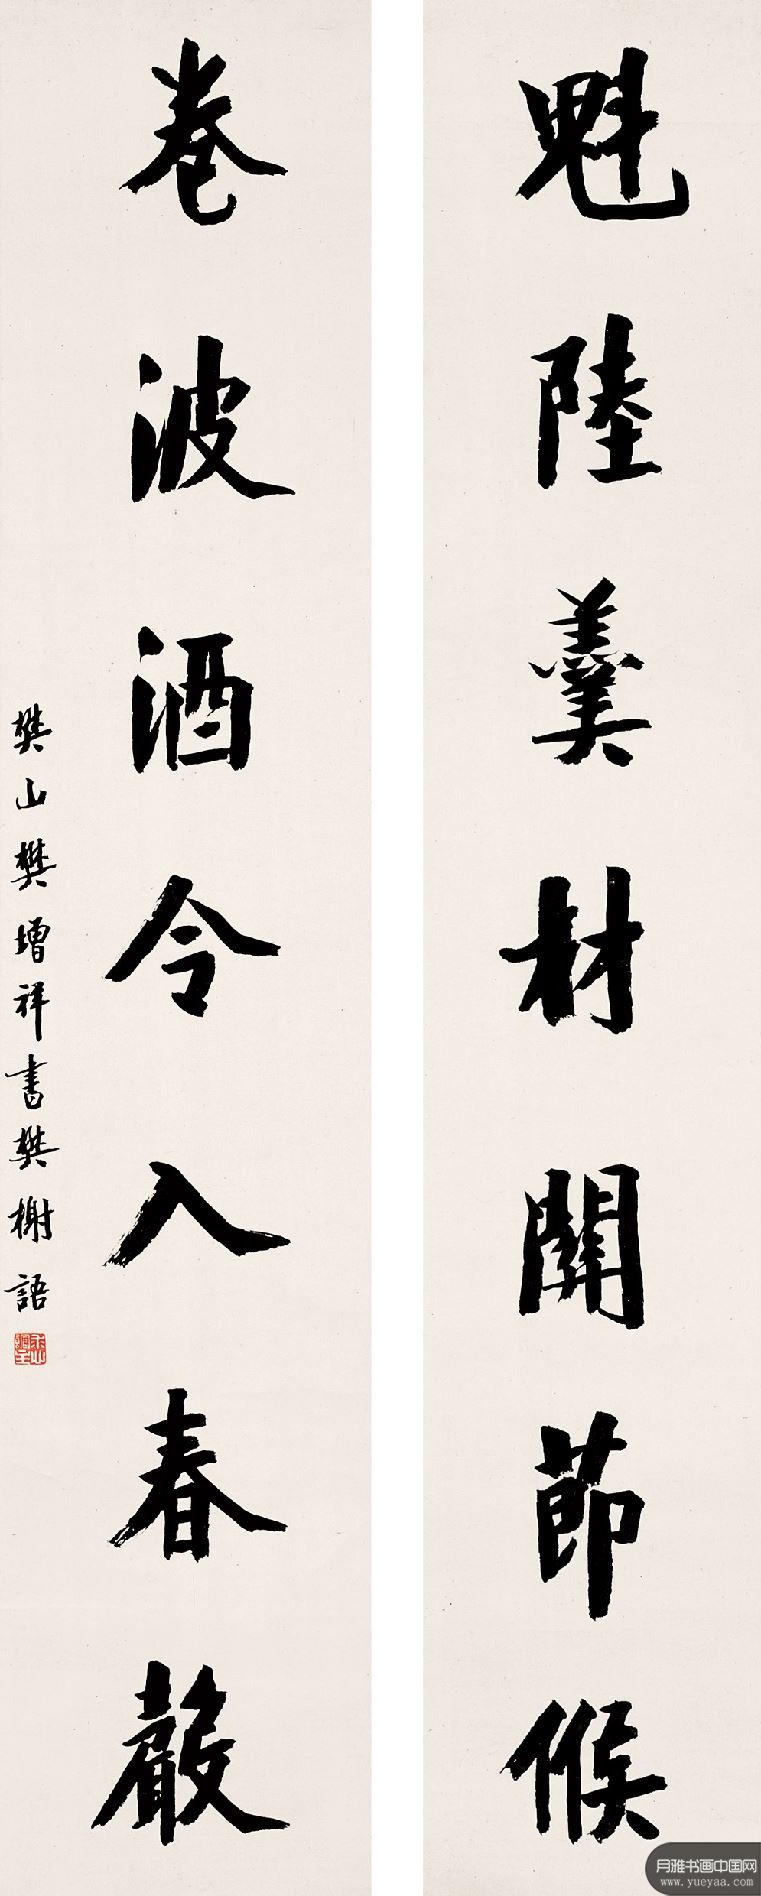 魁陸羹材關節候
卷波酒令入春聲
樊山樊增祥書樊榭語
月雅书画中国网
www.yueyaa.com